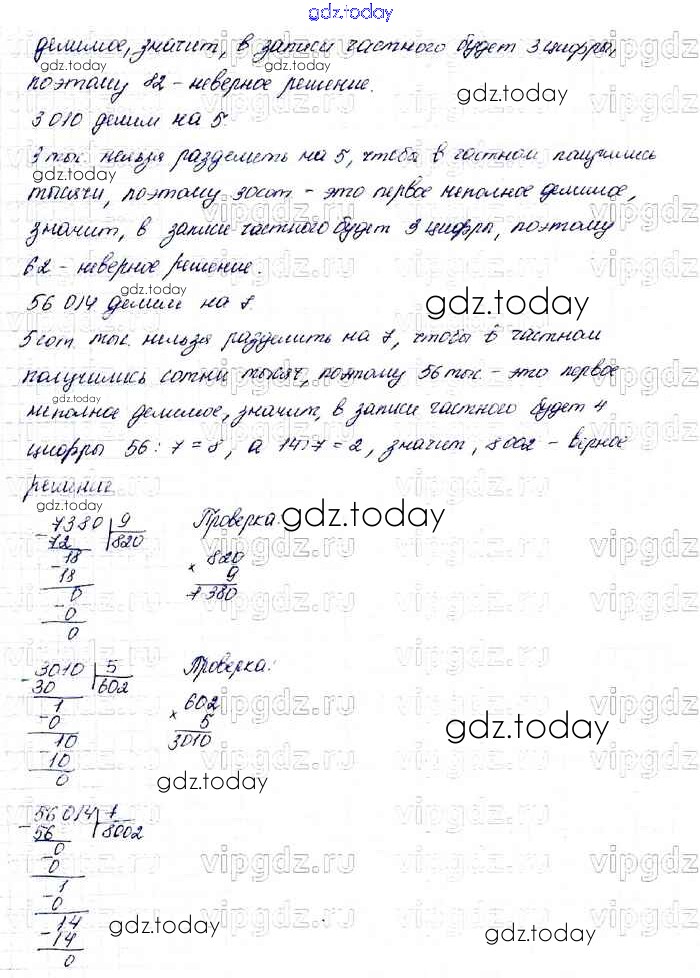 gdz.today
делимое, значит, в записи частного будет 3 цифры,
поэтому 82 - неверное решение.
3010 делим на 5.
3 тыс. нельзя разделить на 5, чтобы в частном получились
тысячи, поэтому 30 сот - это первое неполное делимое,
значит, в записи частного будет 3 цифры, поэтому
62 - неверное решение.
56 014 делим на 7.
5 сот. тыс. нельзя разделить на 7, чтобы в частном
получились сотни тысяч, поэтому 56 тыс. - это первое
неполное делимое, значит, в записи частного будет 4
цифры 56 : 7 = 8, а 14 : 7 = 2, значит, 8002 - верное
решение
7380 | 9
- 72 | 820
18
- 18
0
- 0
0
Проверка:
× 820
9
7380
3010 | 5
- 30 | 602
1
- 0
10
- 10
0
Проверка:
× 602
5
3010
56 014 | 7
- 56 | 8002
0
- 0
1
- 0
14
- 14
0
gdz.today
gdz.today
gdz.today
gdz.today
gdz.today
gdz.today
gdz.today
gdz.today
gdz.today
gdz.today
gdz.today
gdz.today
vipgdz.ru